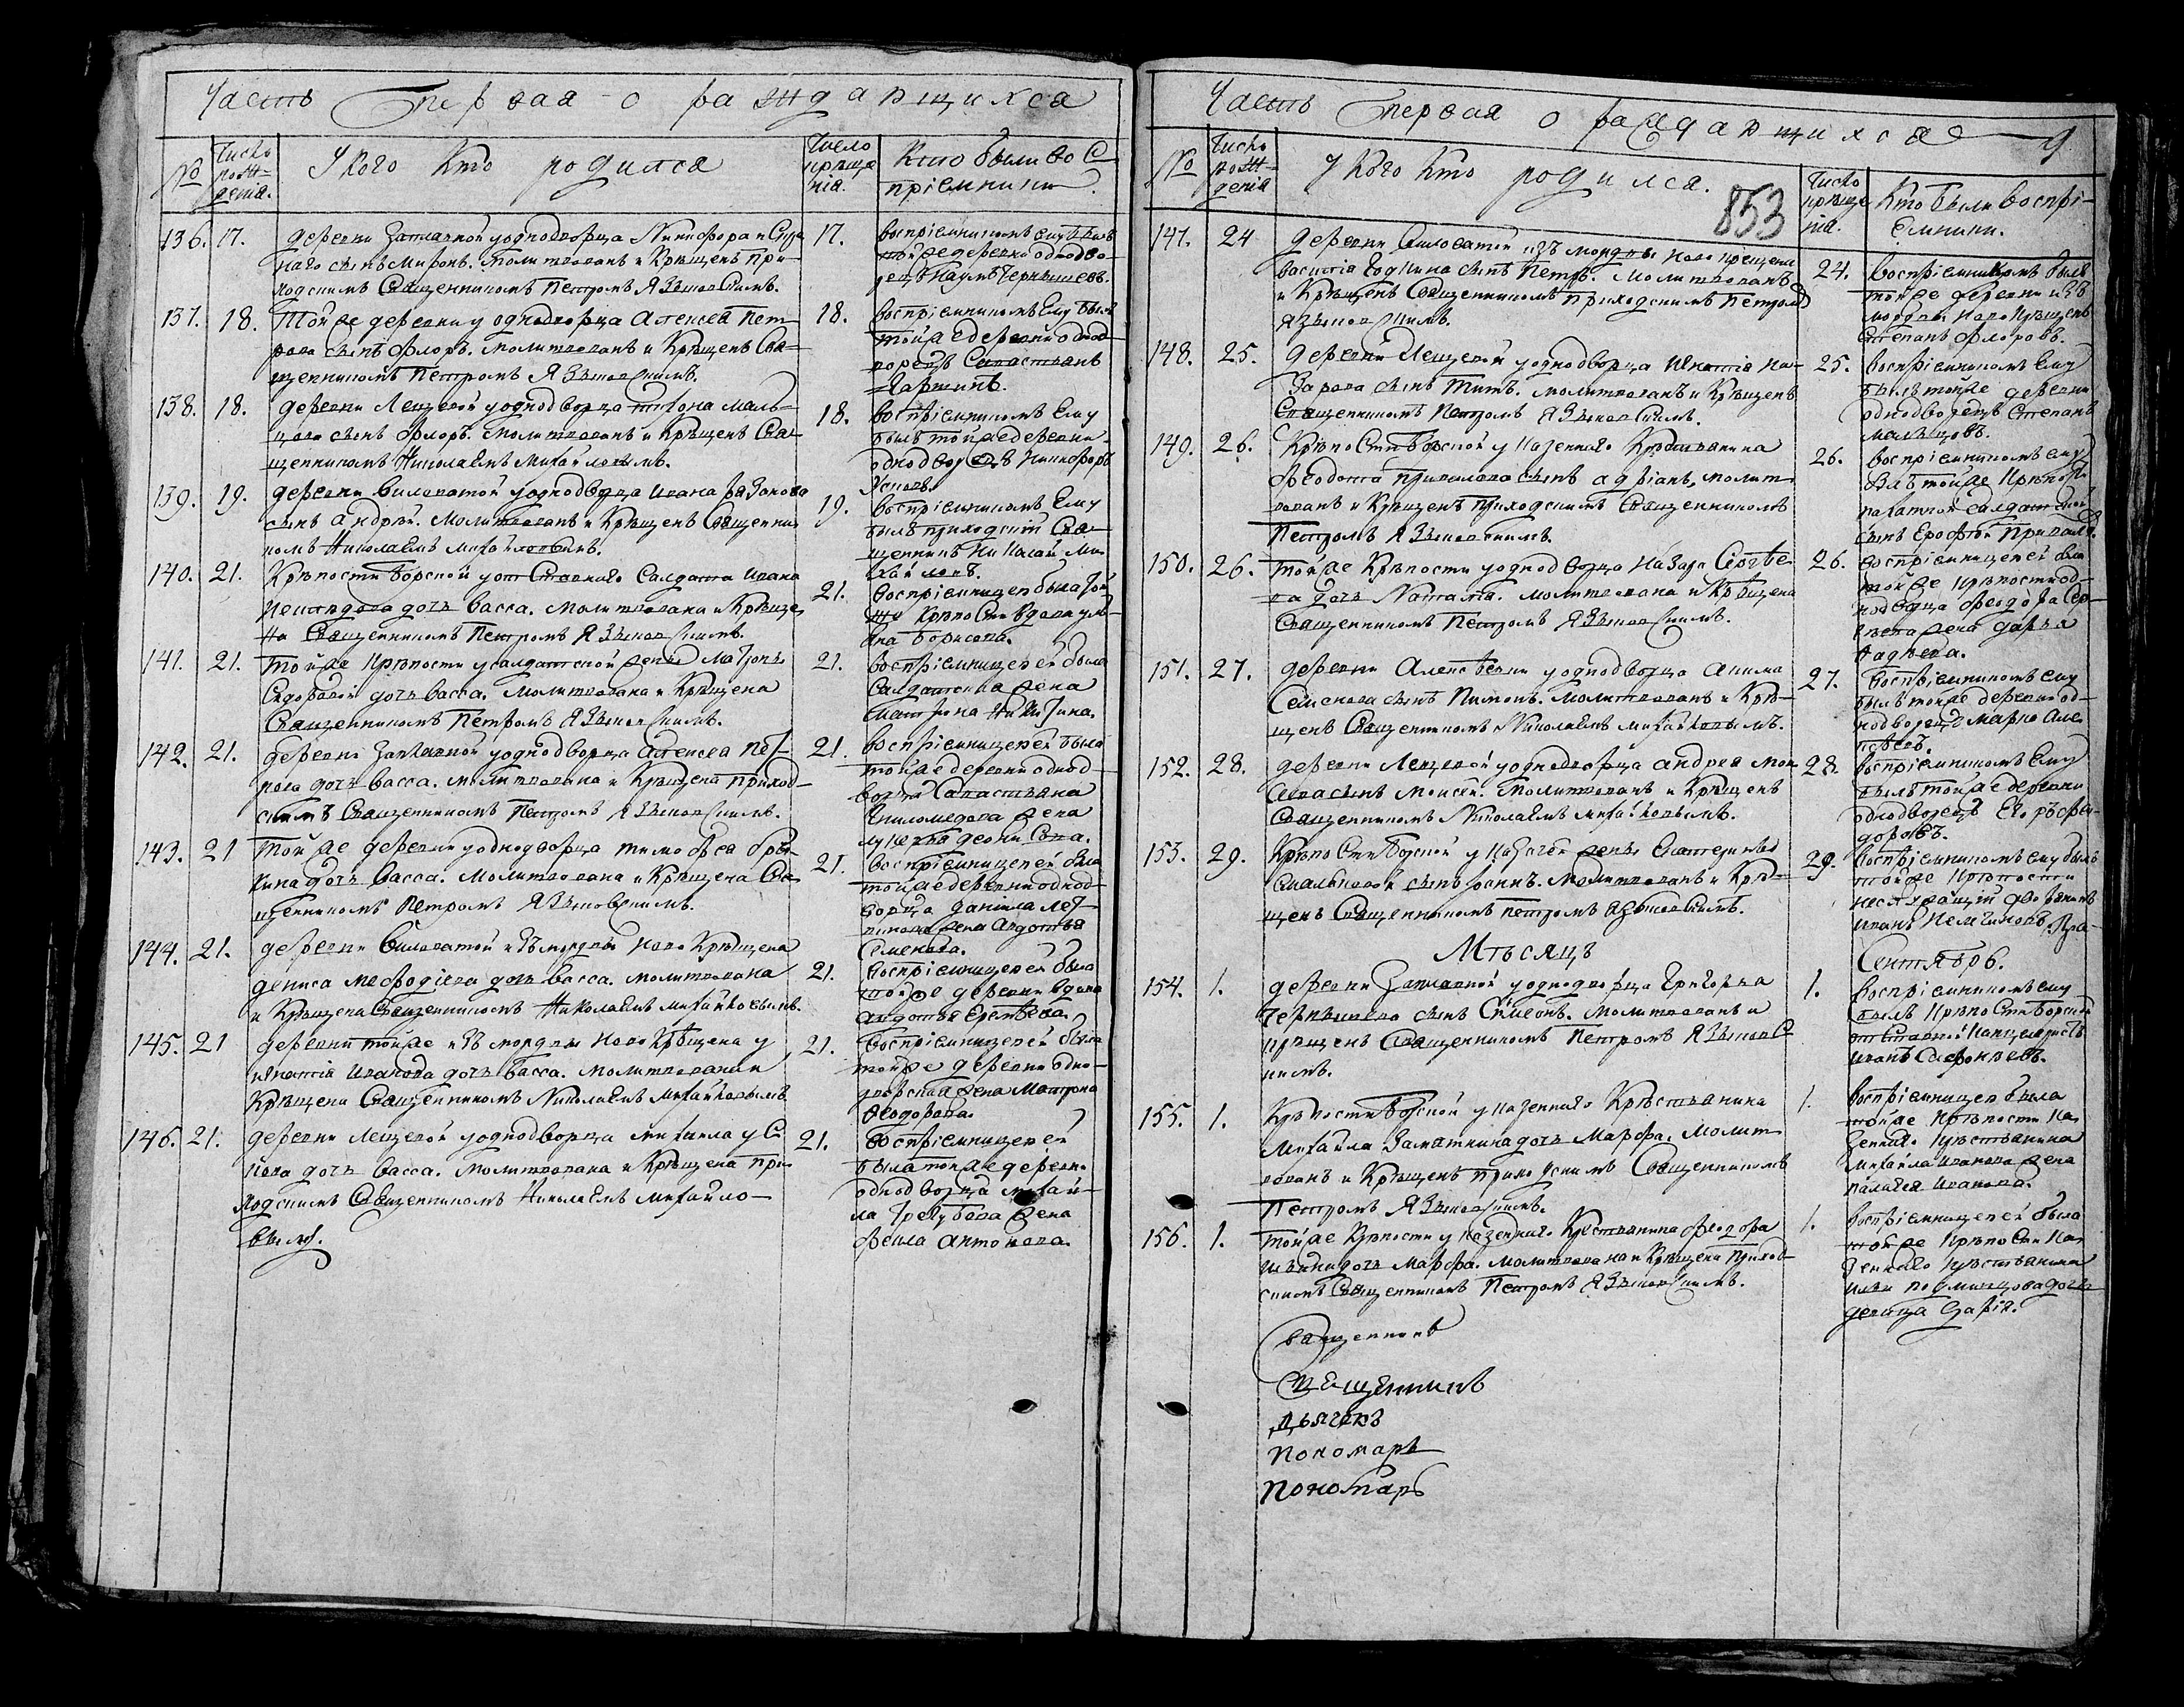 Часть первая о раждающихся
№
Число рожденія.
У кого кто родился
Число крѣщенія.
Кто были воспріемники.
136. 17.
деревни Заплавной уоднодворца
сынъ Миронъ. молитвованъ и Крѣщенъ при-
ходскимъ Священникомъ Петромъ Языковскимъ.
17.
воспріемникомъ ему былъ
той же деревни однодво-
рецъ Наумъ Чернышевъ.
137. 18.
Той же деревни у однодворца Алексея Пет-
рова сынъ Флоръ. молитвованъ и Крѣщенъ Свя-
щенникомъ Петромъ Языковскимъ.
18.
воспріемникомъ Ему былъ
той же деревни однод-
ворецъ Савастьянъ
138. 18.
деревни Лещевой уоднодворца Тихона Маль-
цова сынъ Флоръ. молитвованъ и Крѣщенъ Свя-
щенникомъ Николаемъ Михайловымъ.
18.
воспріемникомъ Ему
былъ той же деревни
однодворецъ Никифоръ
Усковъ.
139. 19.
деревни Виловатой уоднодворца Ивана Разанова
сынъ Андрей. Молитвованъ и Крѣщенъ Священни-
комъ Николаемъ Михайловымъ.
19.
воспріемникомъ Ему
былъ приходскій Свя-
щенникъ Николай Ми-
хайловъ.
140. 21.
Крѣпости Борской уотставнаго Салдата Ивана
дочь Васса. Молитвована и Крѣще-
на Священникомъ Петромъ Языковскимъ.
21.
воспріемницею была той
же Крѣпости вдова Улья-
на Борисова.
141. 21.
Той же Крѣпости усалдатской жены Матроны
Сидоровой дочь Васса. Молитвована и Крѣщена
Священникомъ Петромъ Языковскимъ.
21.
воспріемницею ей была
Салдатская жена
Матрона Никитина.
142. 21.
деревни Заплавной уоднодворца Алексея Пет-
рова дочь Васса. Молитвована и Крѣщена приход-
скимъ Священникомъ Петромъ Языковскимъ.
21.
воспріемницею ей была
той же деревни однод-
ворца Савастьяна
жена
143. 21
Той же деревни уоднодворца Тимофея
дочь Васса. Молитвована и Крѣщена Свя-
щенникомъ Петромъ Языковскимъ.
21.
воспріемницею ей была
той же деревни однод-
ворца Данила
жена Авдотья
Семенова.
144. 21.
деревни Виловатой изъ мордвы ново Крѣщена
Дениса Мефодіева дочь Васса. молитвована
и Крѣщена Священникомъ Николаемъ Михайловымъ.
21.
воспріемницею ей была
той же деревни вдова
Авдотья
145. 21
деревни той же изъ мордвы ново Крѣщена у
Игнатія Иванова дочь Васса. молитвована и
Крѣщена Священникомъ Николаемъ Михайловымъ
21.
воспріемницею ей была
той же деревни одно-
дворская жена Матрона
Федорова.
146. 21.
деревни Лещевой уоднодворца Михаила Ус-
кова дочь Васса. Молитвована и Крѣщена при-
ходскимъ Священникомъ Николаемъ Михайло-
вымъ.
21.
воспріемницею ей
была той же деревни
однодворца Михай-
ла жена
Фекла Антонова.
Часть первая о раждающихся 9
853
№
Число рожденія
У кого кто родился.
Число крѣщенія.
Кто были воспріемники.
147. 24
Деревни Виловатой изъ мордвы ново крещена
Василія сынъ Петръ. Молитвованъ
и Крѣщенъ Священникомъ приходскимъ Петромъ
Языковскимъ.
24.
воспріемникомъ былъ
той же деревни изъ
мордвы ново Крѣщенъ
Степанъ Флоровъ.
148. 25.
деревни Лещевой уоднодворца Игнатія На-
зарова сынъ Титъ. молитвованъ и Крѣщенъ
Священникомъ Петромъ Языковскимъ.
25.
воспріемникомъ Ему
былъ той же деревни
однодворецъ Степанъ
Мальцовъ.
149. 26.
Крѣпости Борской у Казеннаго Крестьянина
Феодота Привалова сынъ Адріанъ, молит-
вованъ и Крѣщенъ приходскимъ Священникомъ
Петромъ Языковскимъ.
26.
воспріемникомъ ему
сынъ Ерофей Приваловъ.
150. 26.
Той же Крѣпости уоднодворца Назара Сергѣе-
ва дочь Наталія. молитвована и Крѣщена
Священникомъ Петромъ Языковскимъ.
26.
воспріемницею ей была
той же крѣпости од-
нодворца Феодора Сер-
гѣева жена Дарья
151. 27.
деревни Алексѣевки уоднодворца Акима
Семенова сынъ Пименъ. молитвованъ и Крѣ-
щенъ Священникомъ Николаемъ Михайловымъ.
27.
воспріемникомъ ему
былъ той же деревни од-
нодворецъ Марко Але-
ксѣевъ.
152. 28.
деревни Лещевой уоднодворца Андрея
сынъ Моисей. Молитвованъ и Крѣщенъ
Священникомъ Николаемъ Михайловымъ.
28.
воспріемникомъ Ему
былъ той же деревни
однодворецъ Егоръ Фео-
доровъ.
153. 29.
Крѣпости Борской у Казачей жены Екатерины
сынъ Іоаннъ. Молитвованъ и Крѣ-
щенъ Священникомъ Петромъ Языковскимъ.
29.
воспріемникомъ ему былъ
той же Крѣпости
дворянинъ
Иванъ
Мѣсяцъ Сентябрь.
154. 1.
деревни Заплавной уоднодворца Григорья
Чернышева сынъ Сімеонъ. Молитвованъ и
крѣщенъ Священникомъ Петромъ Языковс-
кимъ.
1.
воспріемникомъ ему
былъ Крѣпости Борской
отставной Канцеляристъ
Иванъ
155. 1.
Крѣпости Борской у казеннаго Крѣстьянина
Михайла Заматкина дочь Марфа. Молит-
вованъ и Крѣщенъ приходскимъ Священникомъ
Петромъ Языковскимъ.
1.
воспріемницею была
той же Крѣпости Ка-
зеннаго Крѣстьянина
Михайла Иванова жена
Палагея Иванова.
156. 1.
Той же Крѣпости у казеннаго Крѣстьянина Феодора
дочь Марфа. Молитвована и Крѣщена приход-
скимъ Священникомъ Петромъ Языковскимъ.
1.
воспріемницею ей была
той же Крѣпости Ка-
зеннаго Крѣстьянина
дочь
девица
Священникъ
Священникъ
Дьячекъ
Пономарь
Пономарь